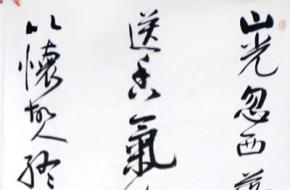 山光忽西
送香氣
此懷故人終